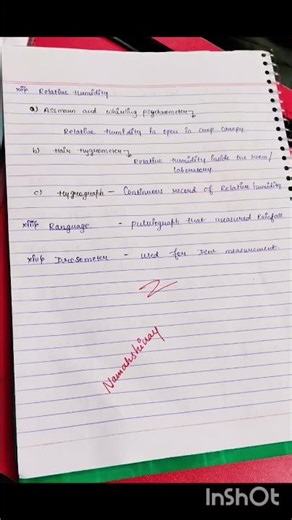 Relative Humidity
a) Assmann and whirling psychrometer
Relative Humidity in open in crop canopy
b) Hair Hygrometer
Relative Humidity inside the room/
laboratory
c) Hygrograph - Continuous record of Relative humidity
Ranguage - that measured Rainfall
Drosometer - used for measurement
2
Namahshivay
InShOt